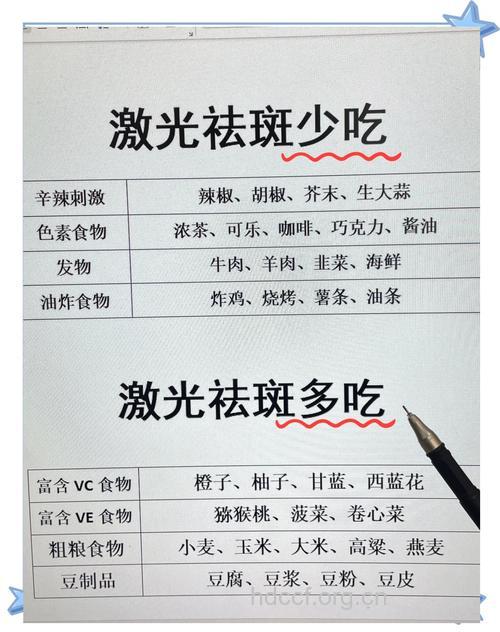 激光祛斑少吃
辛辣刺激 辣椒、胡椒、芥末、生大蒜
色素食物 浓茶、可乐、咖啡、巧克力、酱油
发物 牛肉、羊肉、韭菜、海鲜
油炸食物 炸鸡、烧烤、薯条、油条
激光祛斑多吃
富含 VC 食物 橙子、柚子、甘蓝、西蓝花
富含 VE 食物 猕猴桃、菠菜、卷心菜
粗粮食物 小麦、玉米、大米、高粱、燕麦
豆制品 豆腐、豆浆、豆粉、豆皮
hdccf.org.cn